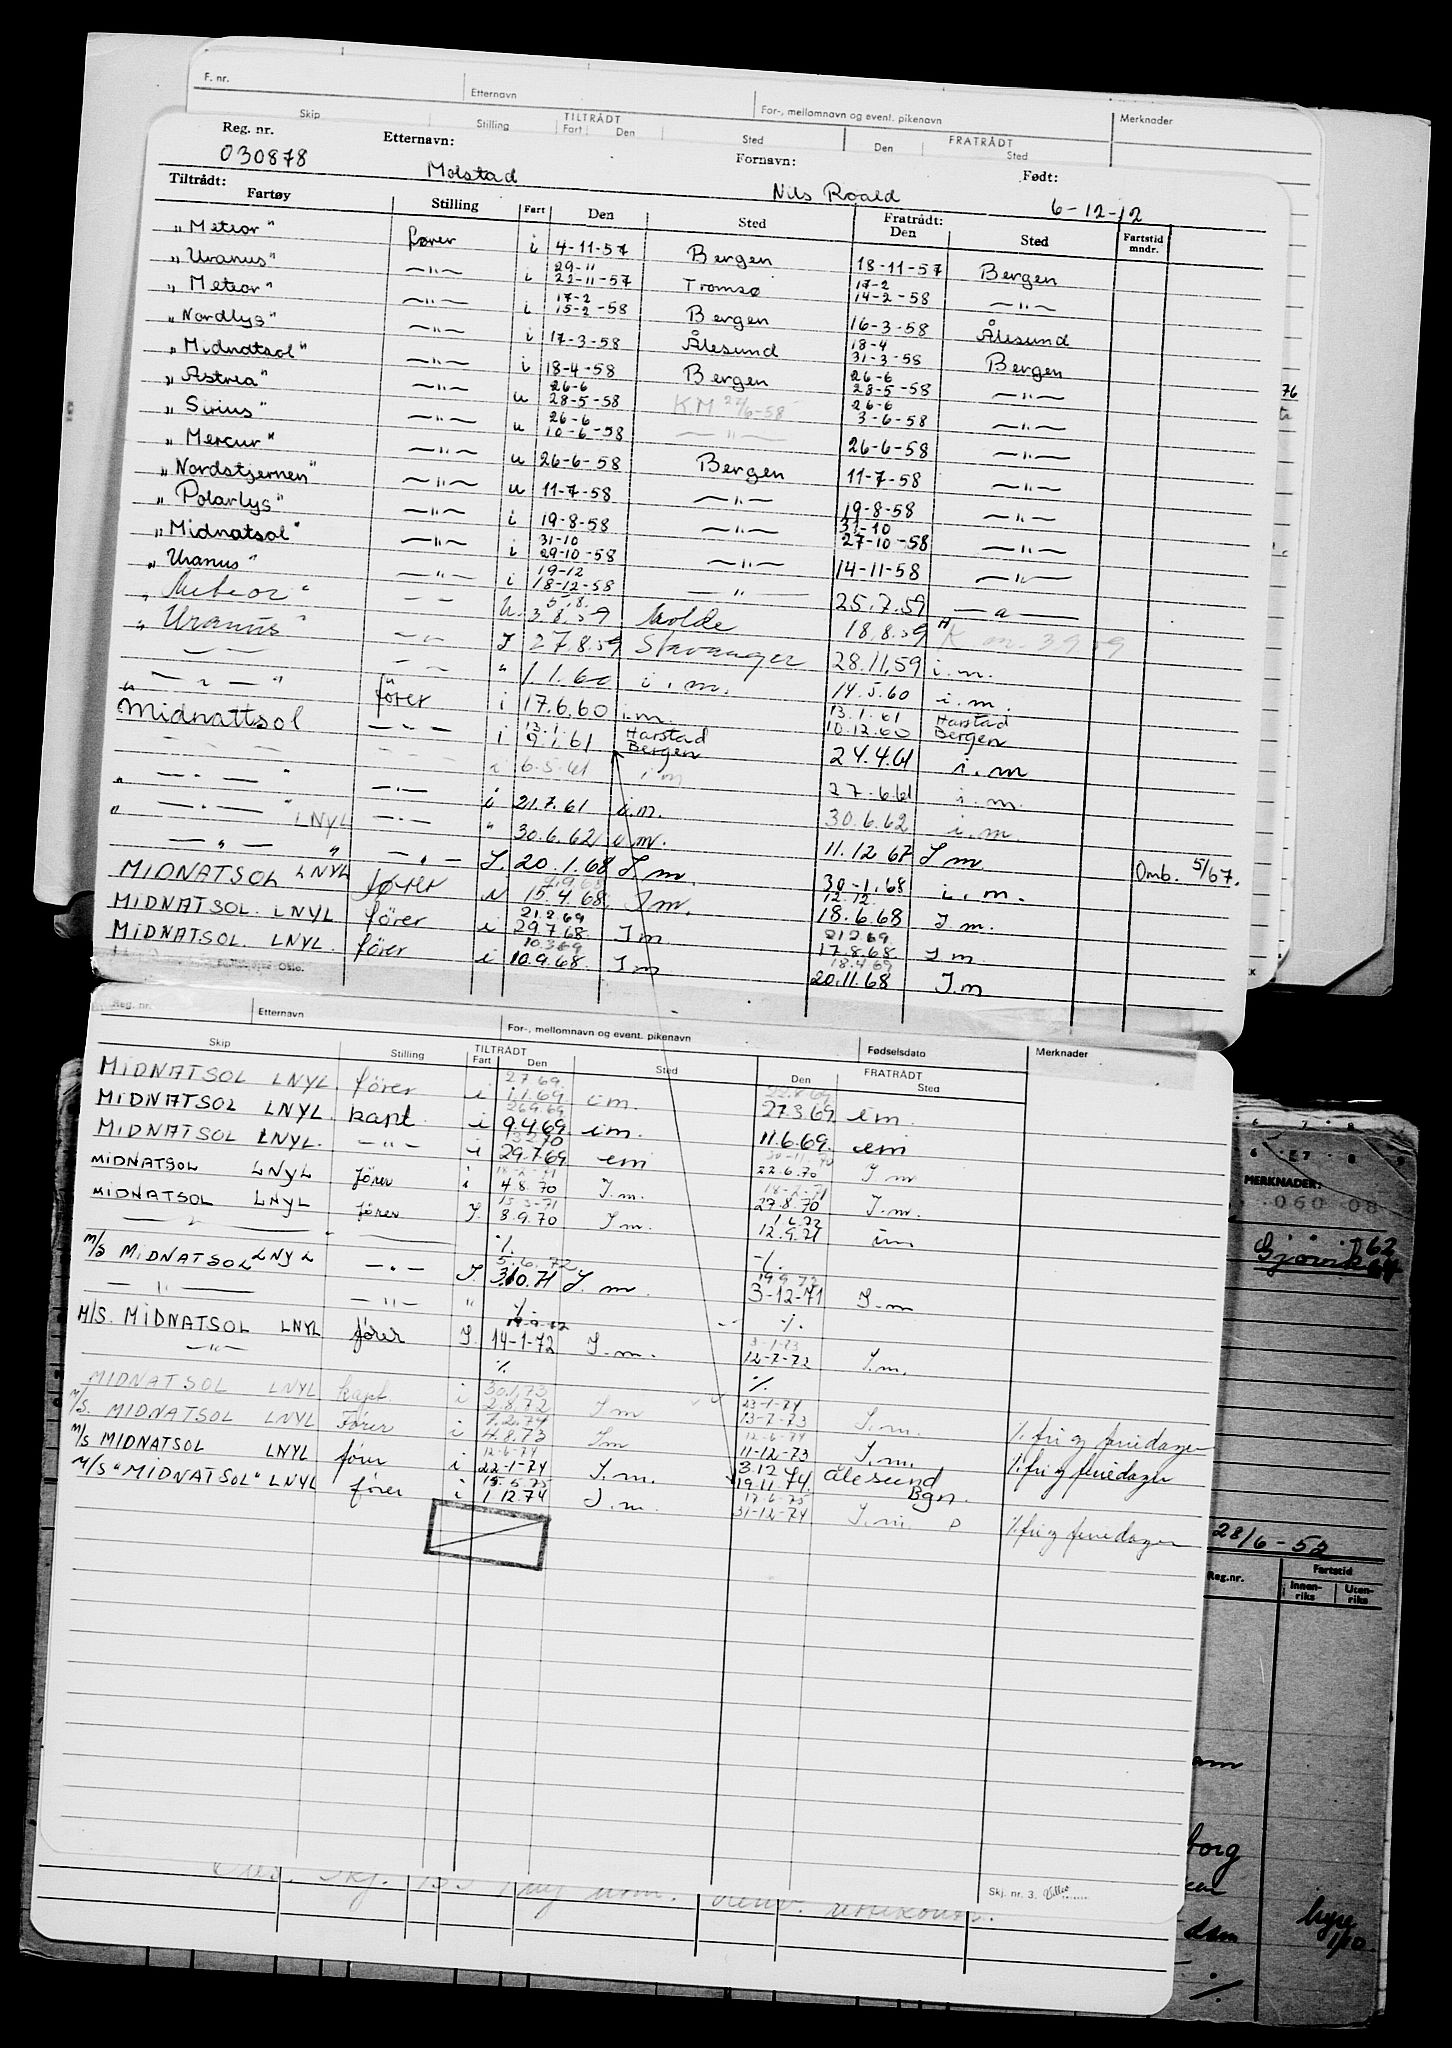 F. nr. Etternavn For-, mellomnavn og event. pikenavn Merknader
Skip Stilling TILTRÅDT Fart Den Sted Den FRATRÅDT Sted
Reg. nr. Etternavn: Fornavn: Født:
030878 Molstad Nils Roald 6-12-12
Tiltrådt: Fratrådt:
Fartøy Stilling Fart Den Sted Den Sted Fartstid mndr.
„Meteor" fører i 4-11-57 Bergen 18-11-57 Bergen
„Uranus" —„— i 29-11 22-11-57 Tromsø 17-2 14-2-58 —„—
„Meteor" —„— i 17-2 15-2-58 Bergen 16-3-58 Ålesund
„Nordlys" —„— i 17-3-58 Ålesund 18-4 31-3-58 Bergen
„Midnatsol" —„— i 18-4-58 Bergen 26-6 28-5-58 —„—
„Astrea" —„— u 26-6 28-5-58 KM 27/6-58 26-6 3-6-58 —„—
„Sirius" —„— u 26-6 10-6-58 —„— 26-6-58 —„—
„Mercur" —„— u 26-6-58 Bergen 11-7-58 —„—
„Nordstjernen" —„— u 11-7-58 —„— 19-8-58 —„—
„Polarlys" —„— i 19-8-58 —„— 31-10 27-10-58 —„—
„Midnatsol" —„— i 31-10 29-10-58 —„— 14-11-58 —„—
„Uranus" —„— i 19-12 18-12-58 —„— 25.7.59 —„—
„Meteor" — — u. 5.8. 3.8.59 Molde 18.8.59 K m. 3.9.59
„Uranus" —„— I 27.8.59 Stavanger 28.11.59 i.m.
—„— — — " 1.1.60 i.m. 14.5.60 i.m.
„ —„— " fører i 17.6.60 i.m. 13.1.61 10.12.60 Harstad Bergen
Midnattsol —„— i 13.1 9.1.61 Harstad Bergen 24.4.61 i.m
i 6.5.61 i m 27.6.61 i.m.
„ —.— " —.— i 21.7.61 i.m. 30.6.62 i.m.
„ —.— " LNYL —.— " 30.6.62 i.m. 11.12 67 I m.
—„— " —„— I. 20.1.68 I m. 30-1.68 i.m. Omb. 5/67.
MIDNATSOL LNYL fører 15.4.68 I m. 12.12 18.6.68 I m.
MIDNATSOL. LNYL fører i 21.2 69 29.7.68 I m 21 2 69 17.8.68 I m
MIDNATSOL. LNYL. fører i 10.3 69 10.9.68. I m 18.4 69 20.11.68 I.m
Reg. nr. Etternavn For-, mellomnavn og event. pikenavn Fødselsdato Merknader
Skip Stilling TILTRÅDT Fart Den Sted Den FRATRÅDT Sted
MIDNATSOL LNYL. fører i 2.7.69. 1.1.69. i m. 27.3.69 im.
MIDNATSOL LNYL. kapt. i 26.9.69 9.4.69 im. 11.6.69. im
MIDNATSOL LNYL. —„— i 29.7.69 im 22.6.70 I m
MIDNATSOL LNYL fører i 4.8.70 I.m. 27.8.70 I.m.
MIDNATSOL LNYL fører I. 15-3-71 8.9.70 I m. 1.6.72 12.9.71 im
—„— ./. -/.
M/S MIDNATSOL LNYL —„— I 5.6.72 3.10.71 I. m. 19 9.72 3-12-71 I.m
—„— —„— " ./. ./.
M/S. MIDNATSOL LNYL fører I. 14-1-72 I.m. 3-1-73 12-7-72 I.m.
—„— ./. ./.
MIDNATSOL LNYL kapt. i 30.1.73 2.8.72 I m 23-1-74 13-7-73 I.m. ./. fri og feriedager
M/S. MIDNATSOL LNYL Fører i 7.2.74 4.8.73 I m 12-6-74 11-12-73 I.m. ./. fri og feriedager
M/S MIDNATSOL LNYL fører i 12-6-74 22-1-74 I.m. 3.12 74 19.11.74. Ålesund Bgn.
M/S "MIDNATSOL" LNYL fører i 1.12.74 I.m. 17.6.75 31-12-74 I.m. D ./. fri og feriedager
Skj. nr. 3.
MERKNADER:
060 08
Gjøvik
28/6-52
Reg.nr. Fartstid
Innenriks Utenriks
hyre 1/10